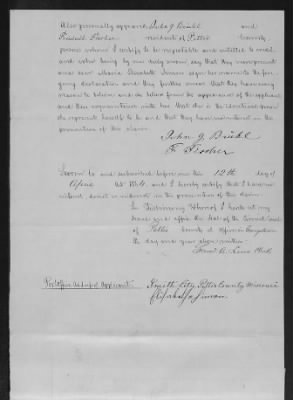 Also personally appeared John G Birkel and
Friedrich Fischer residents of Pettis County
persons whom I certify to be respectable and entitled to credit
and who being by me duly sworn, say that they were present
and saw Maria Elisabeth sign her name to the fore
going declaration and they further swear that they have every
reason to believe and do believe from the appearance of the applicant
and their acquaintance with her that she is the identical person
she represents herself to be and that they have no interest in the
prosecution of this claim.
John G. Birkel
Fr. Fischer
Sworn to and subscribed before me this 12th day of
April AD 1864, and I hereby certify that I have no
interest, direct or indirect in the prosecution of this claim.
In Testimony Whereof I hereto set my
hand and affix the Seal of the Circuit Court
of Pettis County at Office in Georgetown
the day and year above written.
Clerk
Postoffice Address of Applicant: Smith City, Pettis County Missouri